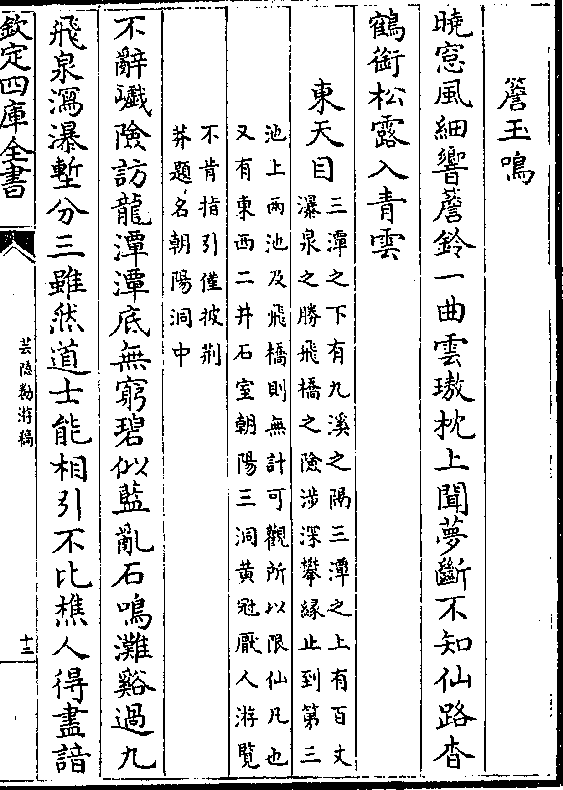 簷玉鳴
曉窓風細響簷鈴一曲雲璈枕上聞夢斷不知仙路杳
鶴銜松露入青雲
東天目
三潭之下有九溪之隔三潭之上有百丈
瀑泉之勝飛橋之險涉深攀縁止到第三
池上兩池及飛橋則無計可觀所以限仙凡也
又有東西二井石室朝陽三洞黄冠厭人游覽
不肯指引僅披荆
莽題名朝陽洞中
不辭巇險訪龍潭潭底無窮碧似藍亂石鳴灘谿過九
飛泉瀉瀑塹分三雖然道士能相引不比樵人得盡諳
欽定四庫全書
芸隱勌游稿
十三